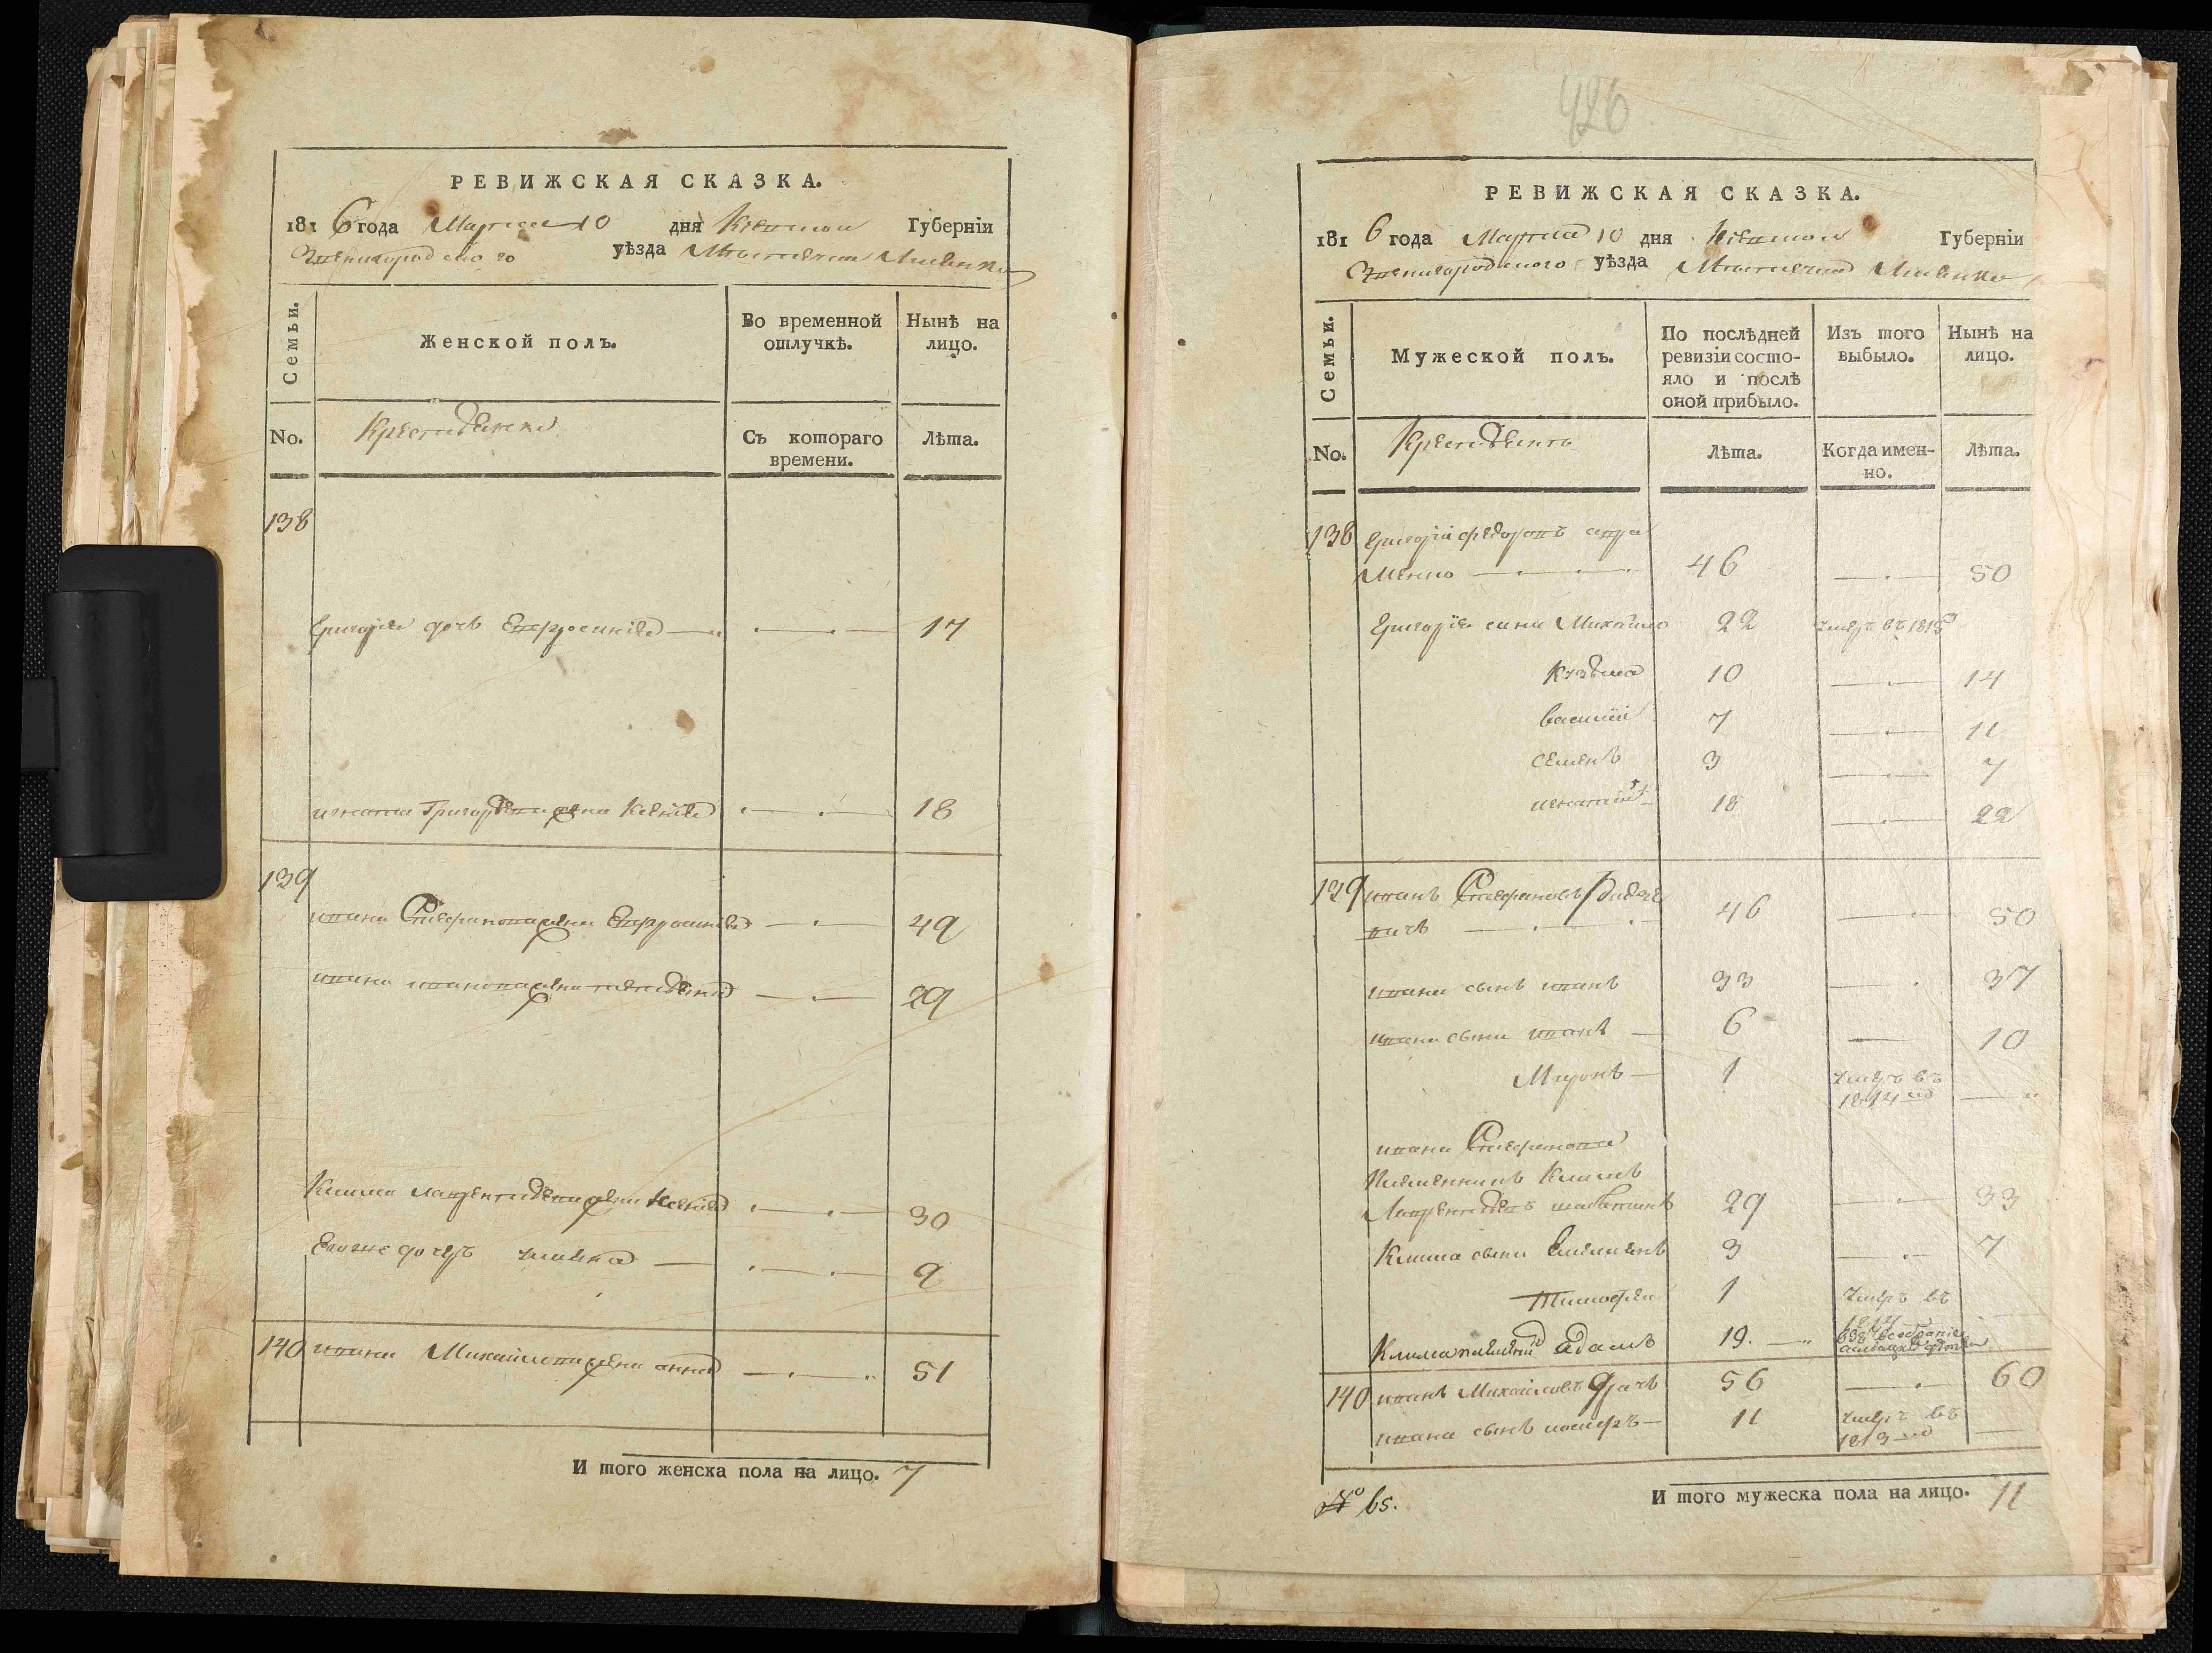 РЕВИЖСКАЯ СКАЗКА.
181 6 года Марта 10 дня Кіевской Губерніи
Звенигородского уѣзда Мѣстечка Лисянки
Семьи.
Женской полъ.
Во временной отлучкѣ.
Нынѣ на лицо.
No.
Крестьяне
Съ котораго времени.
Лѣта.
138
Григорія дочь Евфросинія 17
игната Григорьева жена Ксенія 18
139
ивана жена Евфросинія 49
ивана иванова жена 29
Клима Лаврентьева жена Ксенія 30
Евоже дочерь 9
140 ивана Михайлова жена анна 51
И того женска пола на лицо. 7
426
РЕВИЖСКАЯ СКАЗКА.
181 6 года Марта 10 дня Кіевской Губерніи
Звенигородского уѣзда Мѣстечка Лисянки
Семьи.
Мужеской полъ.
По послѣдней ревизіи состояло и послѣ оной прибыло.
Изъ того выбыло.
Нынѣ на лицо.
No.
Крестьянъ
Лѣта.
Когда именно.
Лѣта.
138 Григорій Федоровъ
46 50
Григорія сини Михайло 22 умеръ въ 1815
Кузьма 10 14
василій 7 11
Семенъ 3 7
игнатій 18 22
139 иванъ
вичъ 46 50
ивана сынъ иванъ 33 37
ивана сыни иванъ 6 10
Миронъ 1 умеръ въ
1814
ивана
Племенникъ Климъ
Лаврентьевъ 29 33
Клима сыни Емельянъ 3 7
Тимофей 1 умеръ въ
Клима адамъ 19.
140 иванъ Михайловъ 56 60
ивана сынъ иосифъ 11 умеръ въ
1813
№ 65.
И того мужеска пола на лицо. 11